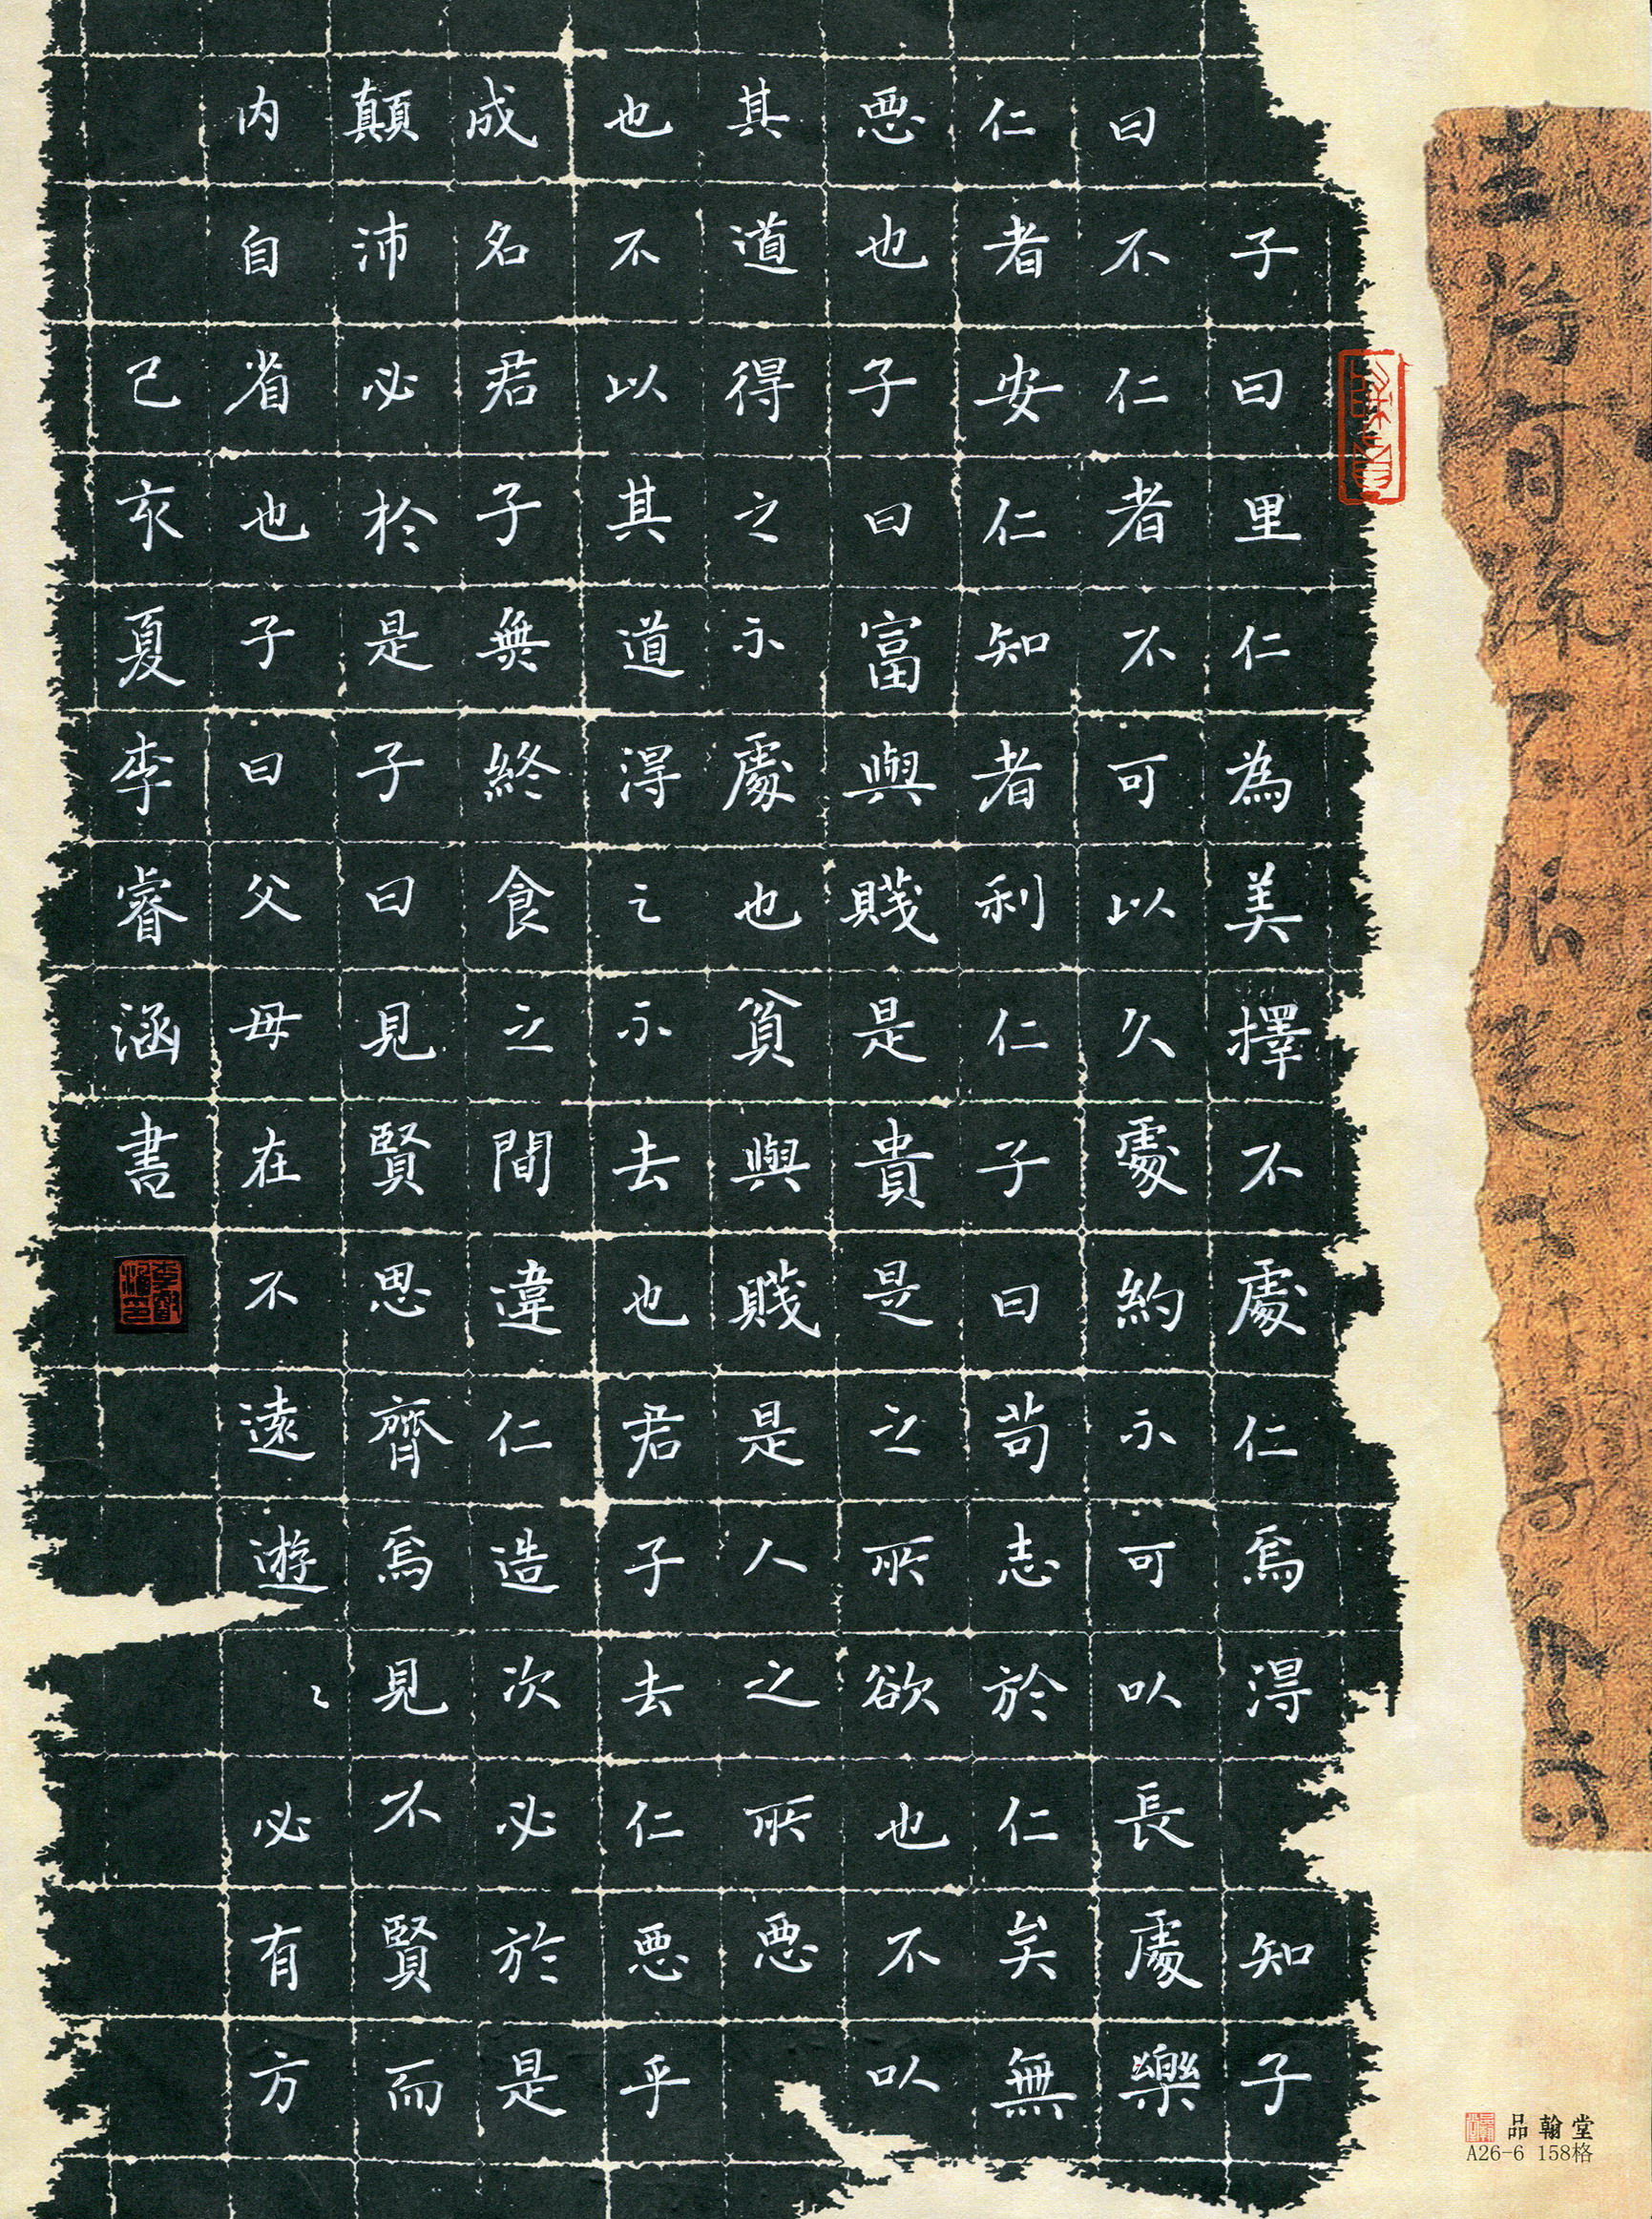 子曰里仁為美擇不處仁焉得知子
曰不仁者不可以久處約不可以長處樂
仁者安仁知者利仁子曰苟志於仁矣無
惡也子曰富與賤是貴是之所欲也不以
其道得之不處也貧與賤是人之所惡
也不以其道得之不去也君子去仁惡乎
成名君子無終食之間違仁造次必於是
顛沛必於是子曰見賢思齊焉見不賢而
内自省也子曰父母在不遠遊〻必有方
己亥夏李睿涵書
品翰堂
A26-6 158格